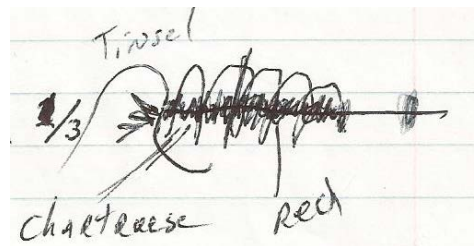 Tinsel
1/3
Chartreese Red